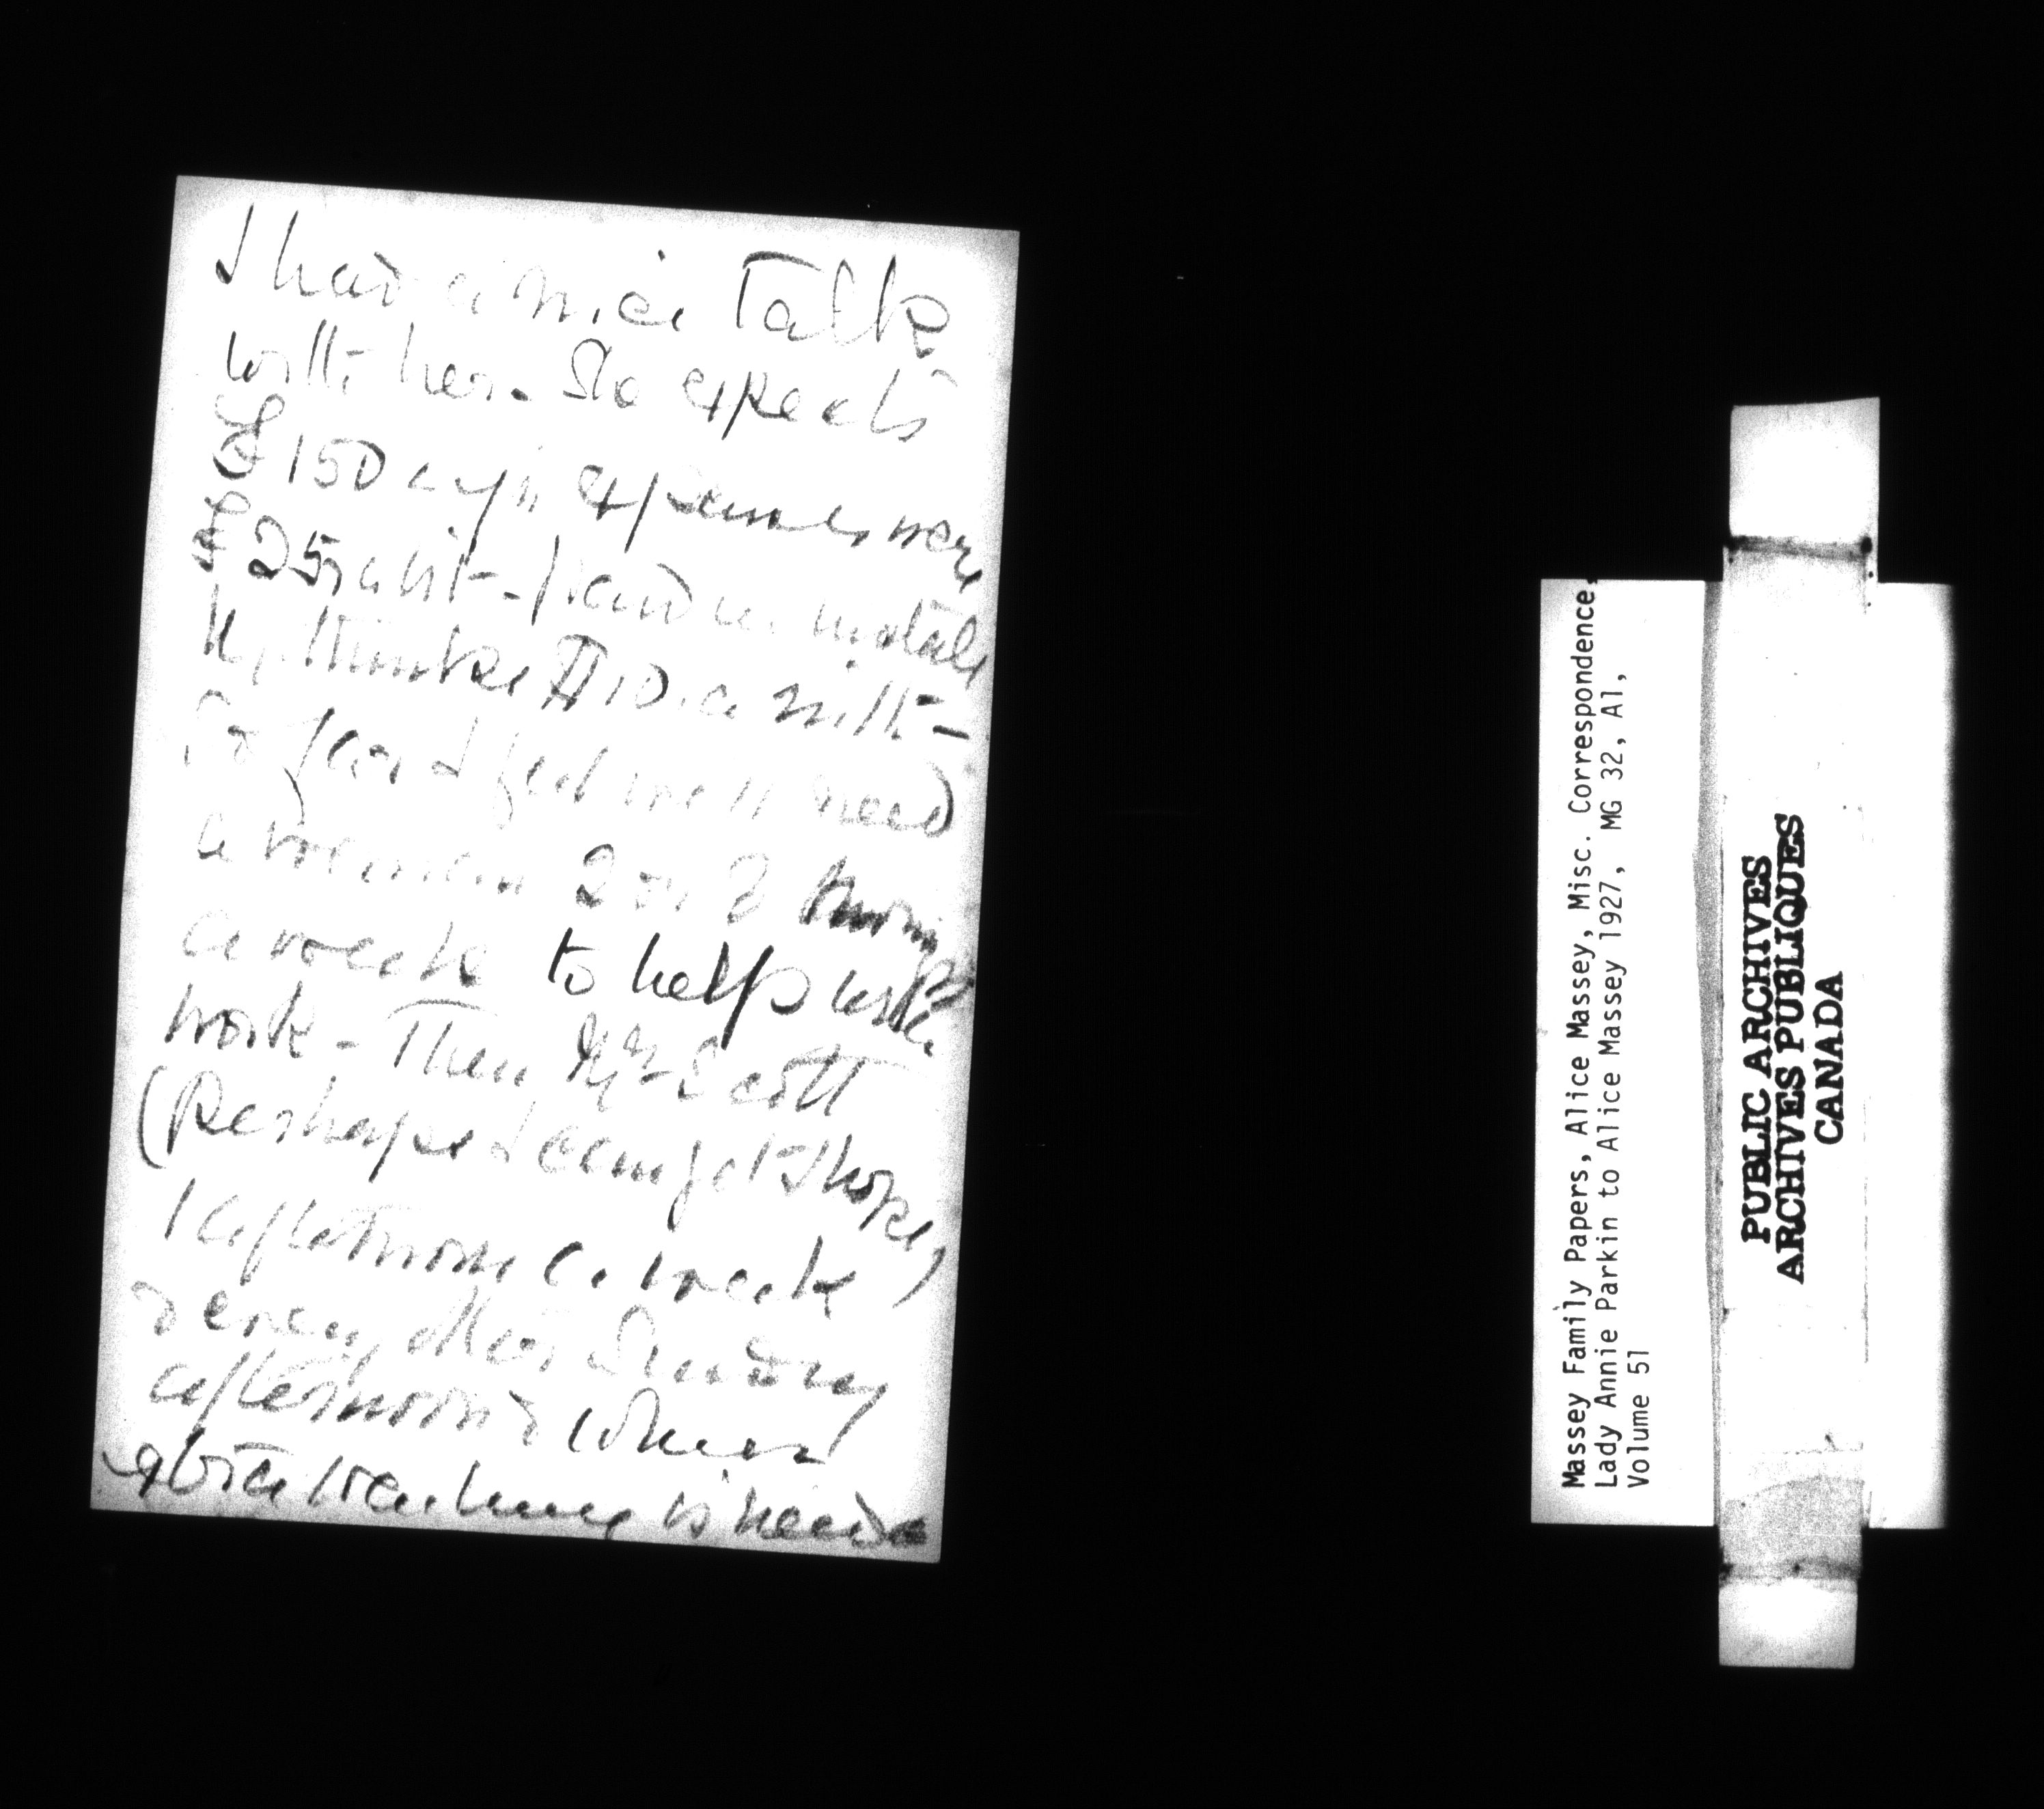 I had a nice talk
with her. She expects
£150 a yr. expenses were
£25 a
think $10. a mth -
So far I feel we'll need
a woman 2 or 3 mornings
a week to help with
work - Then Mrs Scott
(Perhaps I can get I hope)
1 afternoon a week
& every other Sunday
afternoon & when
extra is needed
Massey Family Papers, Alice Massey, Misc. Correspondence,
Lady Annie Parkin to Alice Massey 1927, MG 32, A1,
Volume 51
PUBLIC ARCHIVES
ARCHIVES PUBLIQUES
CANADA